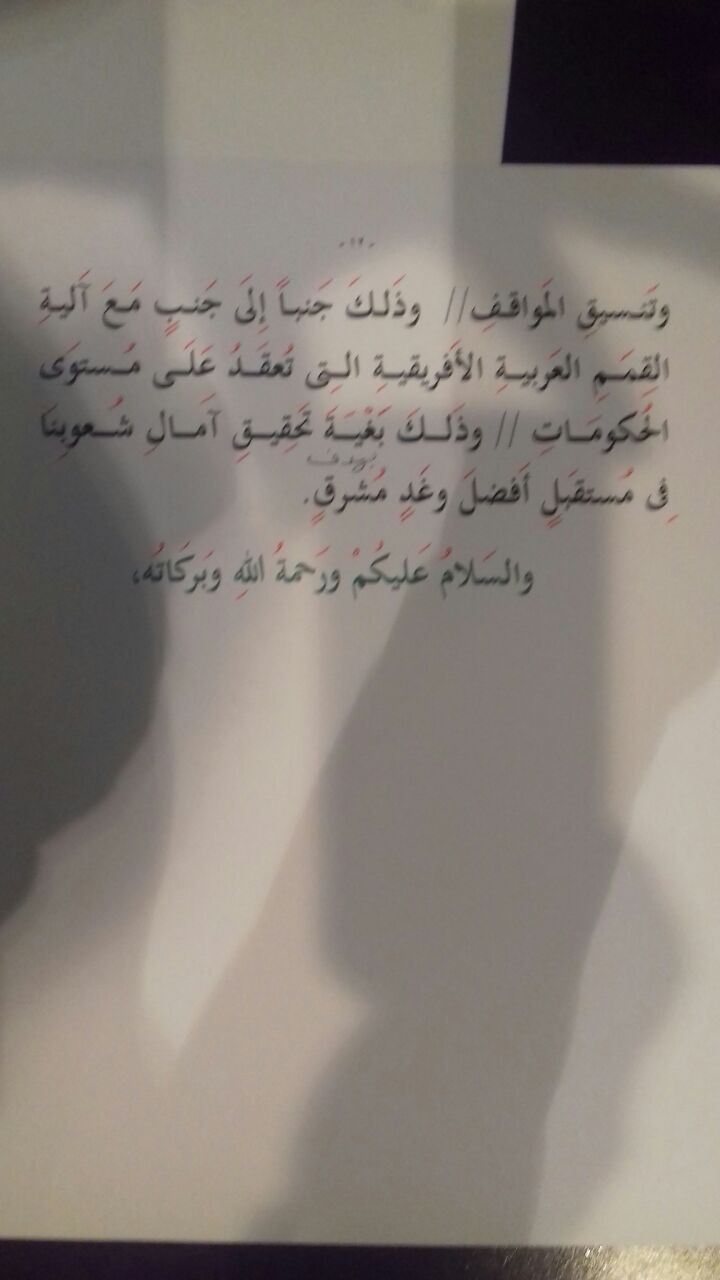 -١٢-
وتَنسيقِ المَواقفِ// وذَلكَ جَنباً إِلَى جَنبٍ مَعَ آليةِ
القِمَمِ العَربيةِ الأَفريقيةِ التِى تُعقَدُ عَلَى مُستوَى
الحُكومَاتِ // وذَلكَ بَغْيَةَ تَحقيقِ آمالِ شُعوبِنَا
بهدف
فِى مُستقبَلٍ أَفضلَ وغَدٍ مُشرقٍ.
والسَلامُ عَليكُمْ ورَحمةُ اللهِ وَبَركَاتُه،